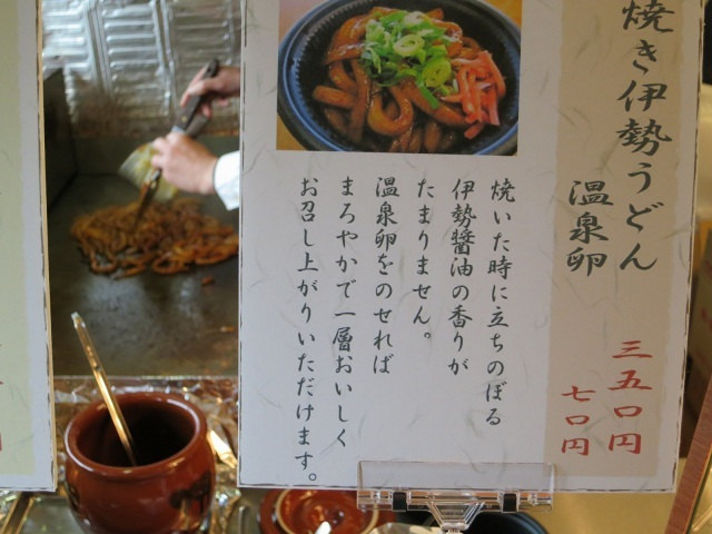 焼き伊勢うどん 三五〇円
温泉卵 七〇円
焼いた時に立ちのぼる
伊勢醤油の香りが
たまりません。
温泉卵をのせれば
まろやかで一層おいしく
お召し上がりいただけます。
円